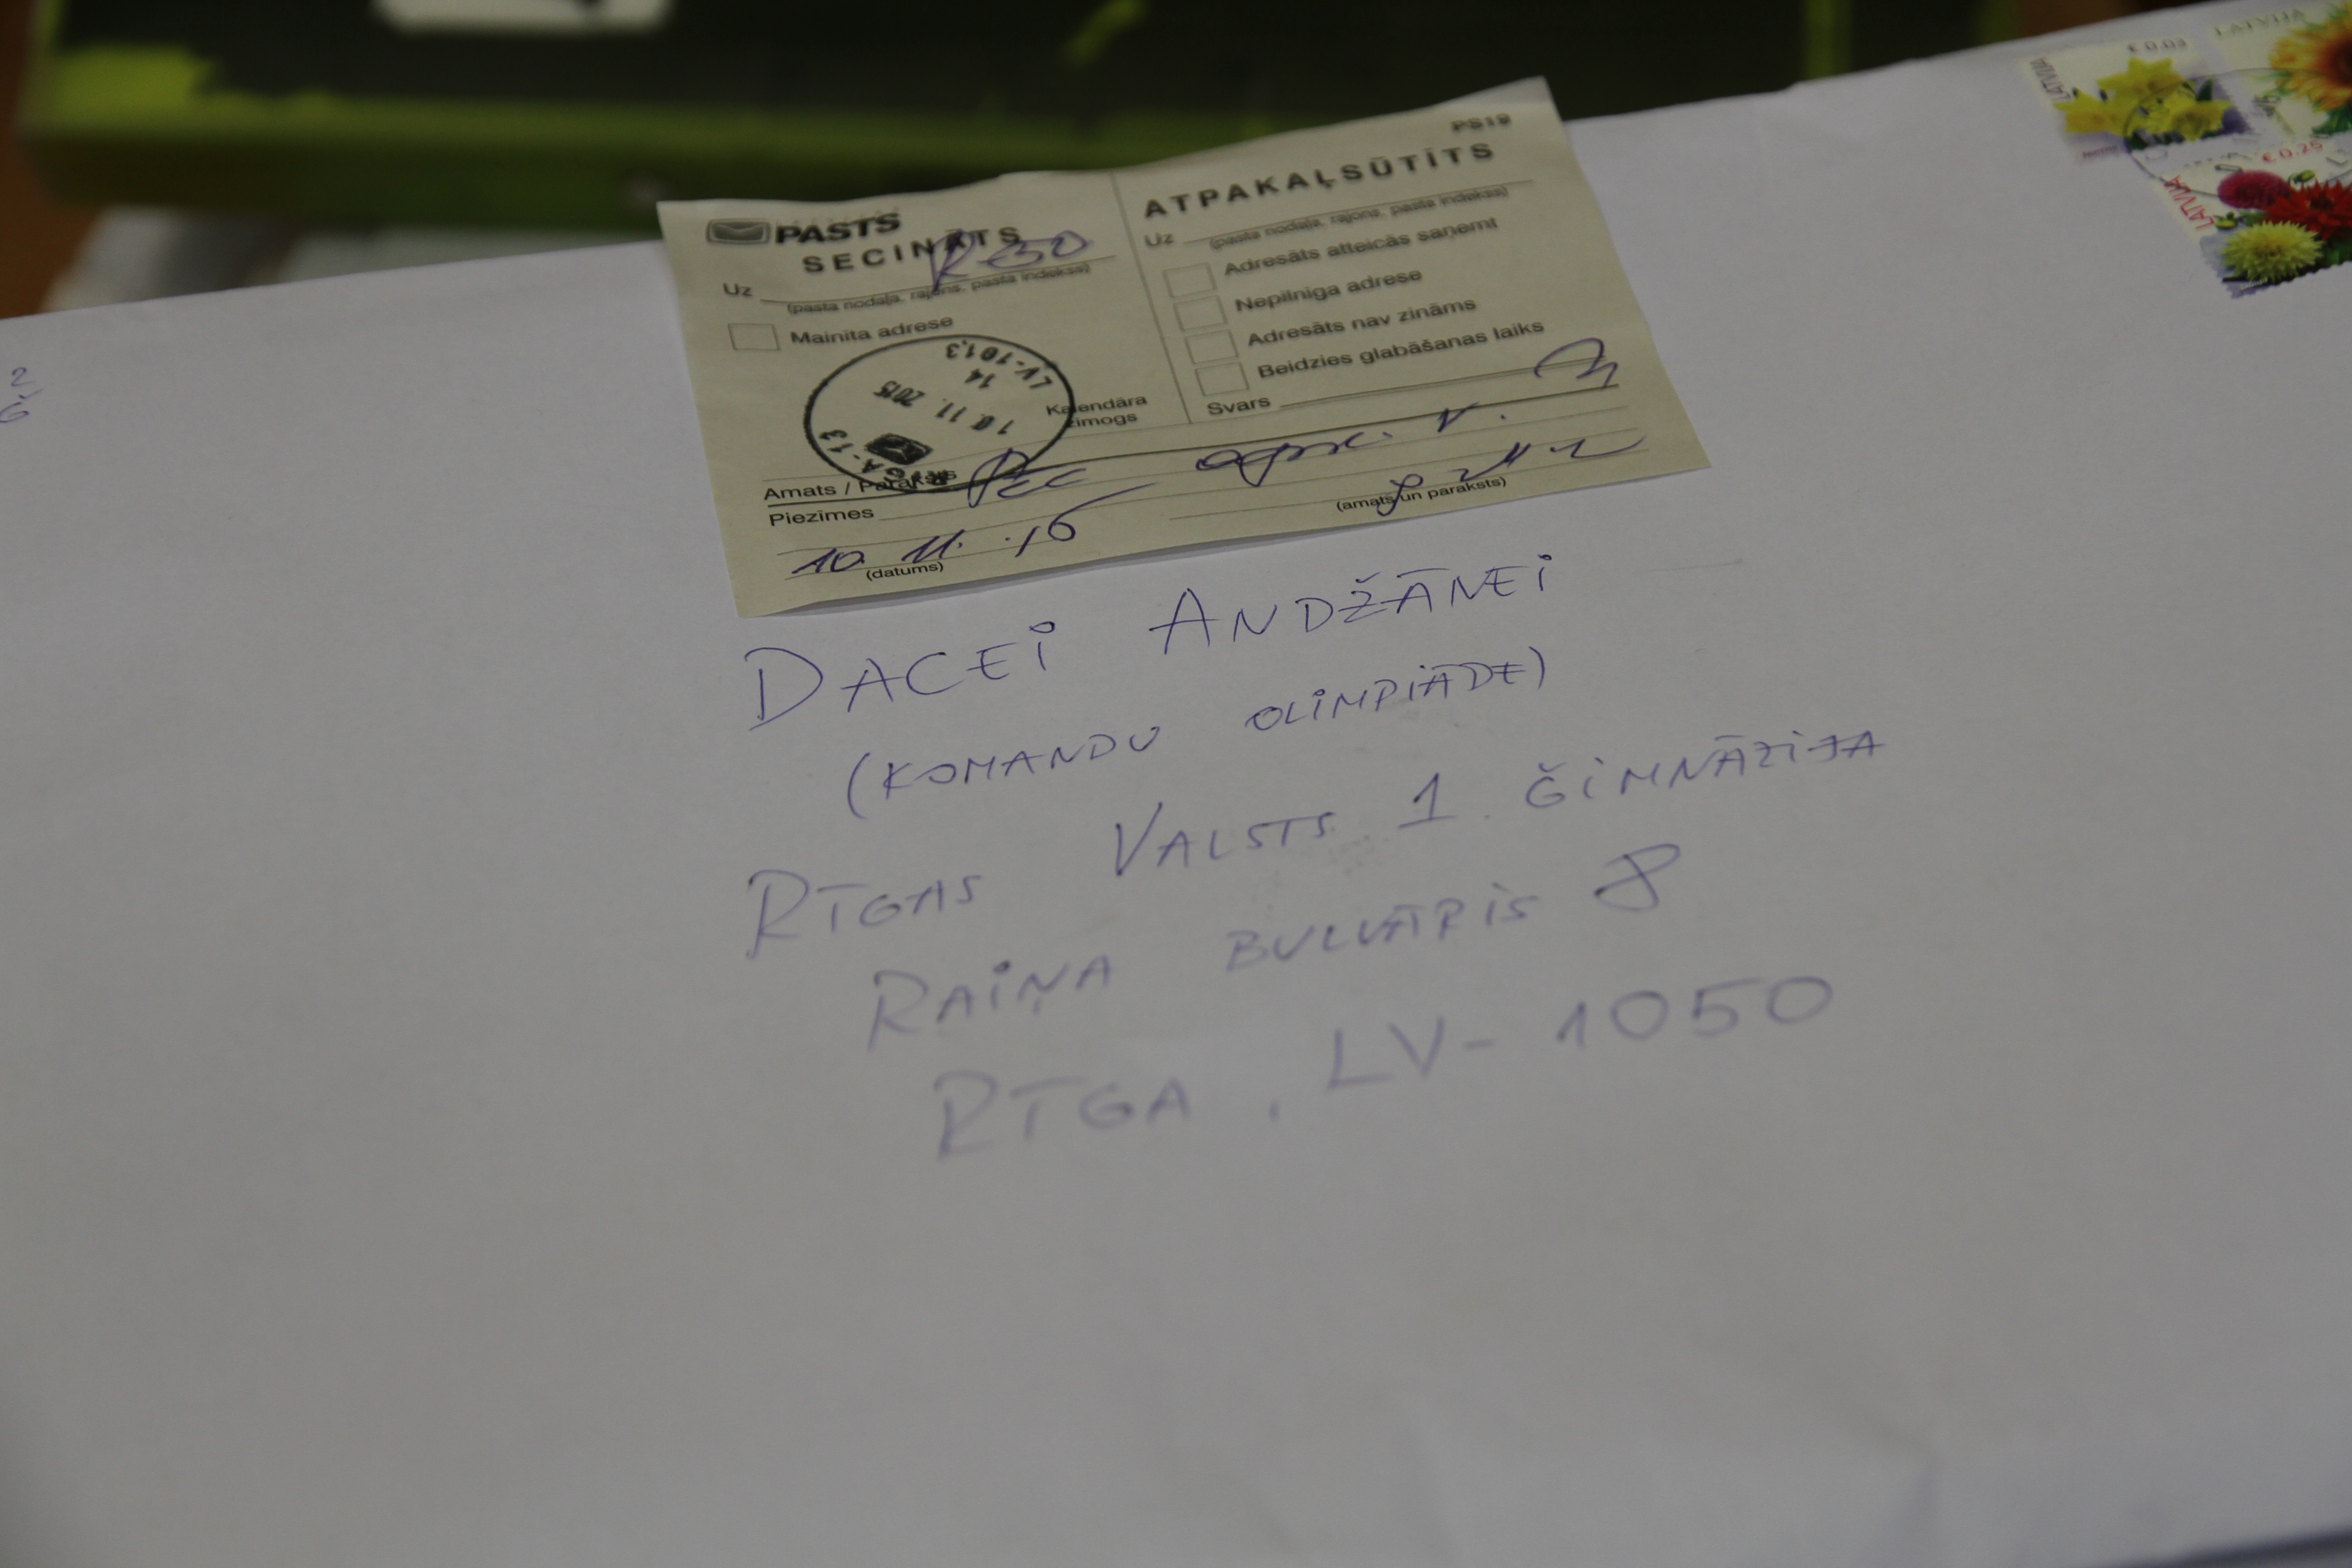 € 0.03
LATVIJA
LATVIJA
€ 0.29
LATVIJA
PS19
PASTS
SECINĀTS
Uz R-50
(pasta nodaļa, rajons, pasta indekss)
Mainīta adrese
Kalendāra
zīmogs
RĪGA-13
10.11.2015
14
LV-1013
Amats / Paraksts
Piezīmes
10. 11. 15
(datums)
ATPAKAĻSŪTĪTS
Uz
(pasta nodaļa, rajons, pasta indekss)
Adresāts atteicās saņemt
Nepilnīga adrese
Adresāts nav zināms
Beidzies glabāšanas laiks
Svars
(amats un paraksts)
2
6
DACEI ANDŽĀNEI
(KOMANDU OLIMPIĀDE)
RĪGAS VALSTS 1. ĢIMNĀZIJA
RAIŅA BULVĀRIS 8
RĪGA, LV-1050